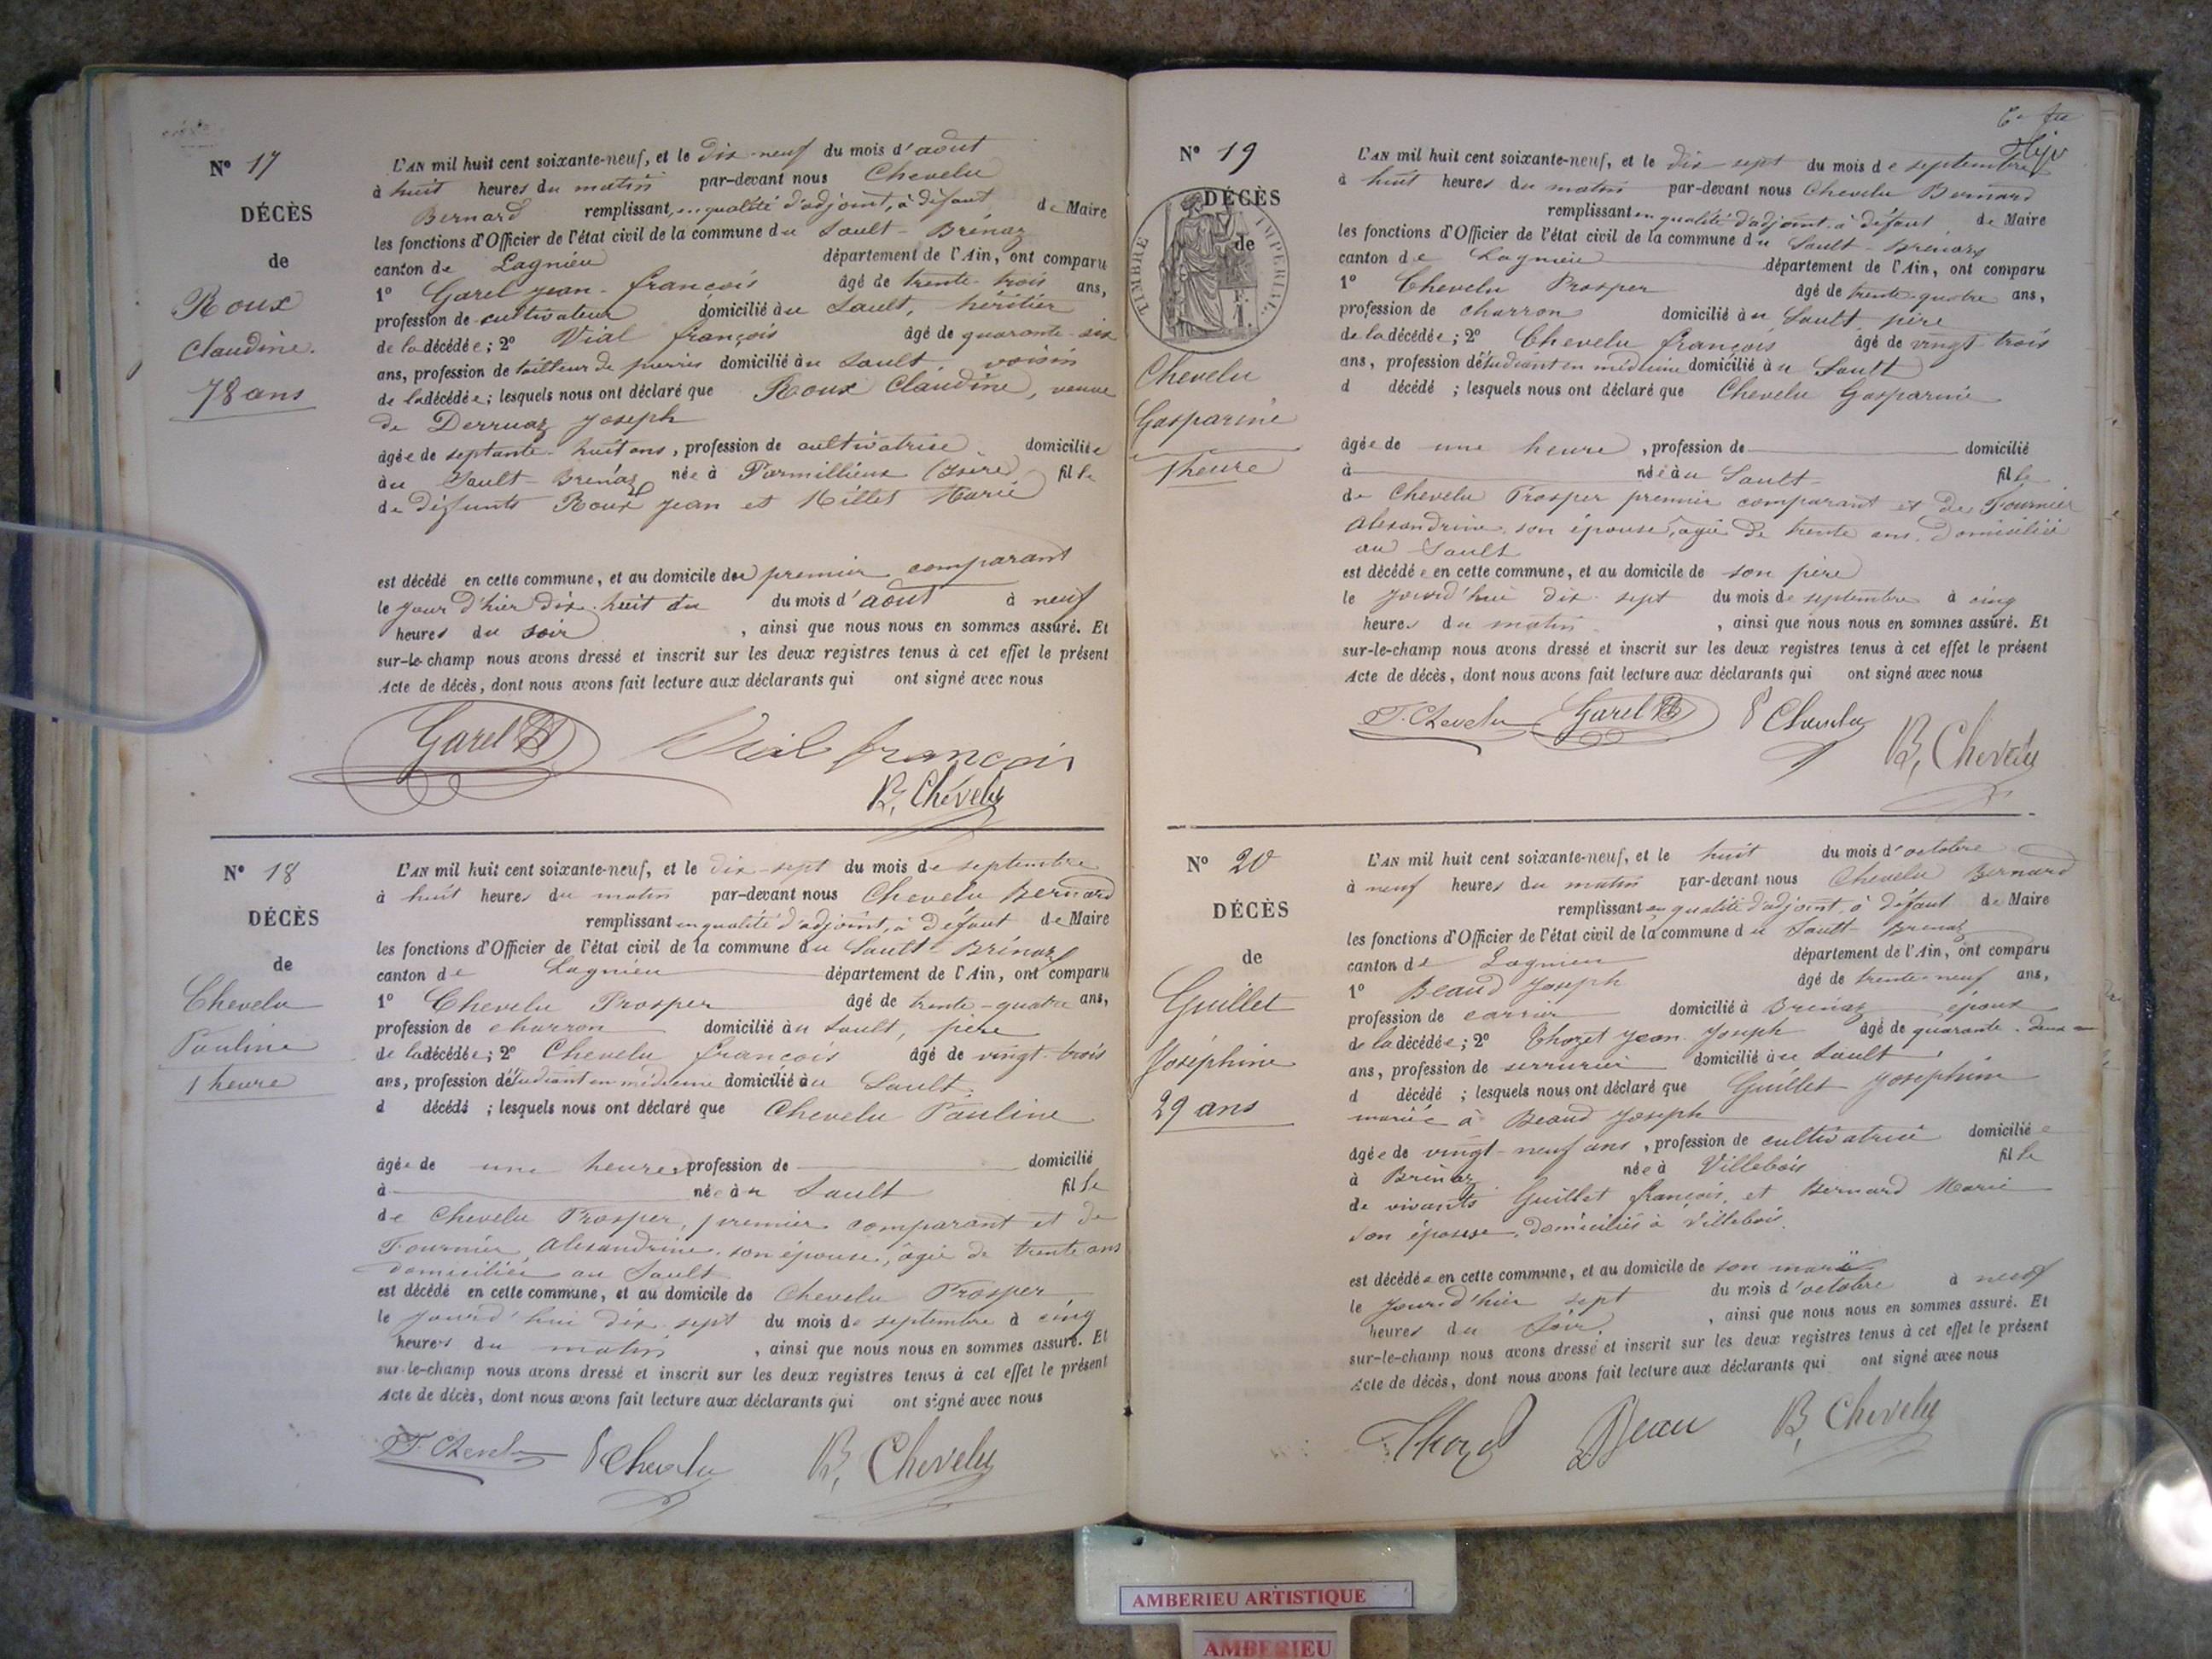 N° 17
DÉCÈS
de
Roux
Claudine.
78 ans
L'AN mil huit cent soixante-neuf, et le dix-neuf du mois d'août
à huit heures du matin par-devant nous Chevelu
Bernard remplissant, en qualité d'adjoint, à défaut de Maire
les fonctions d'Officier de l'état civil de la commune du Sault-Brénaz
canton de Lagnieu département de l'Ain, ont comparu
1° Garel jean-françois âgé de trente-trois ans,
profession de cultivateur domicilié au Sault, héritier
de la décédée; 2° Vial françois âgé de quarante-six
ans, profession de tailleur de pierres domicilié au Sault, voisin
de la décédée; lesquels nous ont déclaré que Roux Claudine, veuve
de Derruaz Joseph
âgée de septante-huit ans, profession de cultivatrice domiciliée
au Sault-Brénaz née à Parmillieux (Isère) fille
de défunts Roux jean et Millet Marie
est décédé en cette commune, et au domicile du premier comparant
le jour d'hier dix-huit du du mois d'août à neuf
heures du soir, ainsi que nous nous en sommes assuré. Et
sur-le-champ nous avons dressé et inscrit sur les deux registres tenus à cet effet le présent
Acte de décès, dont nous avons fait lecture aux déclarants qui ont signé avec nous
Garel Vial françois
B, Chevelu
N° 18
DÉCÈS
de
Chevelu
Pauline
1 heure
L'AN mil huit cent soixante-neuf, et le dix-sept du mois de septembre
à huit heures du matin par-devant nous Chevelu Bernard
remplissant en qualité d'adjoint, à défaut de Maire
les fonctions d'Officier de l'état civil de la commune du Sault-Brénaz
canton de Lagnieu département de l'Ain, ont comparu
1° Chevelu Prosper âgé de trente-quatre ans,
profession de charron domicilié au Sault, père
de la décédée; 2° Chevelu françois âgé de vingt-trois
ans, profession d'étudiant en médecine domicilié au Sault
d décédé ; lesquels nous ont déclaré que Chevelu Pauline
âgée de une heure, profession de domicilié
à née au Sault fille
de Chevelu Prosper, premier comparant et de
Fournier, Alexandrine, son épouse, âgée de trente ans
domiciliée au Sault
est décédé en cette commune, et au domicile de Chevelu Prosper,
le jourd'hui dix-sept du mois de septembre à cinq
heures du matin, ainsi que nous nous en sommes assuré. Et
sur-le-champ nous avons dressé et inscrit sur les deux registres tenus à cet effet le présent
Acte de décès, dont nous avons fait lecture aux déclarants qui ont signé avec nous
F. Chevelu P Chevelu B, Chevelu
N° 19
DÉCÈS
de
TIMBRE IMPÉRIAL
Chevelu
Gasparine
1 heure
L'AN mil huit cent soixante-neuf, et le dix-sept du mois de septembre
à huit heures du matin par-devant nous Chevelu Bernard
remplissant en qualité d'adjoint à défaut de Maire
les fonctions d'Officier de l'état civil de la commune du Sault-Brenaz
canton de Lagnieu département de l'Ain, ont comparu
1° Chevelu Prosper âgé de trente-quatre ans,
profession de charron domicilié au Sault, père
de la décédée; 2° Chevelu françois âgé de vingt-trois
ans, profession d'étudiant en médecine domicilié au Sault
d décédé ; lesquels nous ont déclaré que Chevelu Gasparine
âgée de une heure, profession de domicilié
à née au Sault fille
de Chevelu Prosper premier comparant et de Fournier
Alexandrine, son épouse, agée de trente ans, domiciliée
au Sault
est décédée en cette commune, et au domicile de son père
le jourd'hui dix-sept du mois de septembre à cinq
heures du matin, ainsi que nous nous en sommes assuré. Et
sur-le-champ nous avons dressé et inscrit sur les deux registres tenus à cet effet le présent
Acte de décès, dont nous avons fait lecture aux déclarants qui ont signé avec nous
F. Chevelu Garel P Chevelu
B, Chevelu
N° 20
DÉCÈS
de
Guillet
Joséphine
29 ans
L'AN mil huit cent soixante-neuf, et le huit du mois d'octobre
à neuf heures du matin par-devant nous Chevelu Bernard
remplissant en qualité d'adjoint, à défaut de Maire
les fonctions d'Officier de l'état civil de la commune du Sault-Brenaz
canton de Lagnieu département de l'Ain, ont comparu
1° Beaud Joseph âgé de trente-neuf ans,
profession de carrier domicilié à Brénaz, époux
de la décédée; 2° Thozet jean-Joseph âgé de quarante-deux
ans, profession de serrurier domicilié au Sault
d décédé ; lesquels nous ont déclaré que Guillet Joséphine
mariée à Beaud Joseph
âgée de vingt-neuf ans, profession de cultivatrice domiciliée
à Brénaz née à Villebois fille
de vivants Guillet françois, et Bernard Marie
son épouse, domiciliés à Villebois.
est décédée en cette commune, et au domicile de son mari
le jour d'hier sept du mois d'octobre à neuf
heures du soir, ainsi que nous nous en sommes assuré. Et
sur-le-champ nous avons dressé et inscrit sur les deux registres tenus à cet effet le présent
Acte de décès, dont nous avons fait lecture aux déclarants qui ont signé avec nous
B, Chevelu
AMBERIEU ARTISTIQUE
AMBERIEU